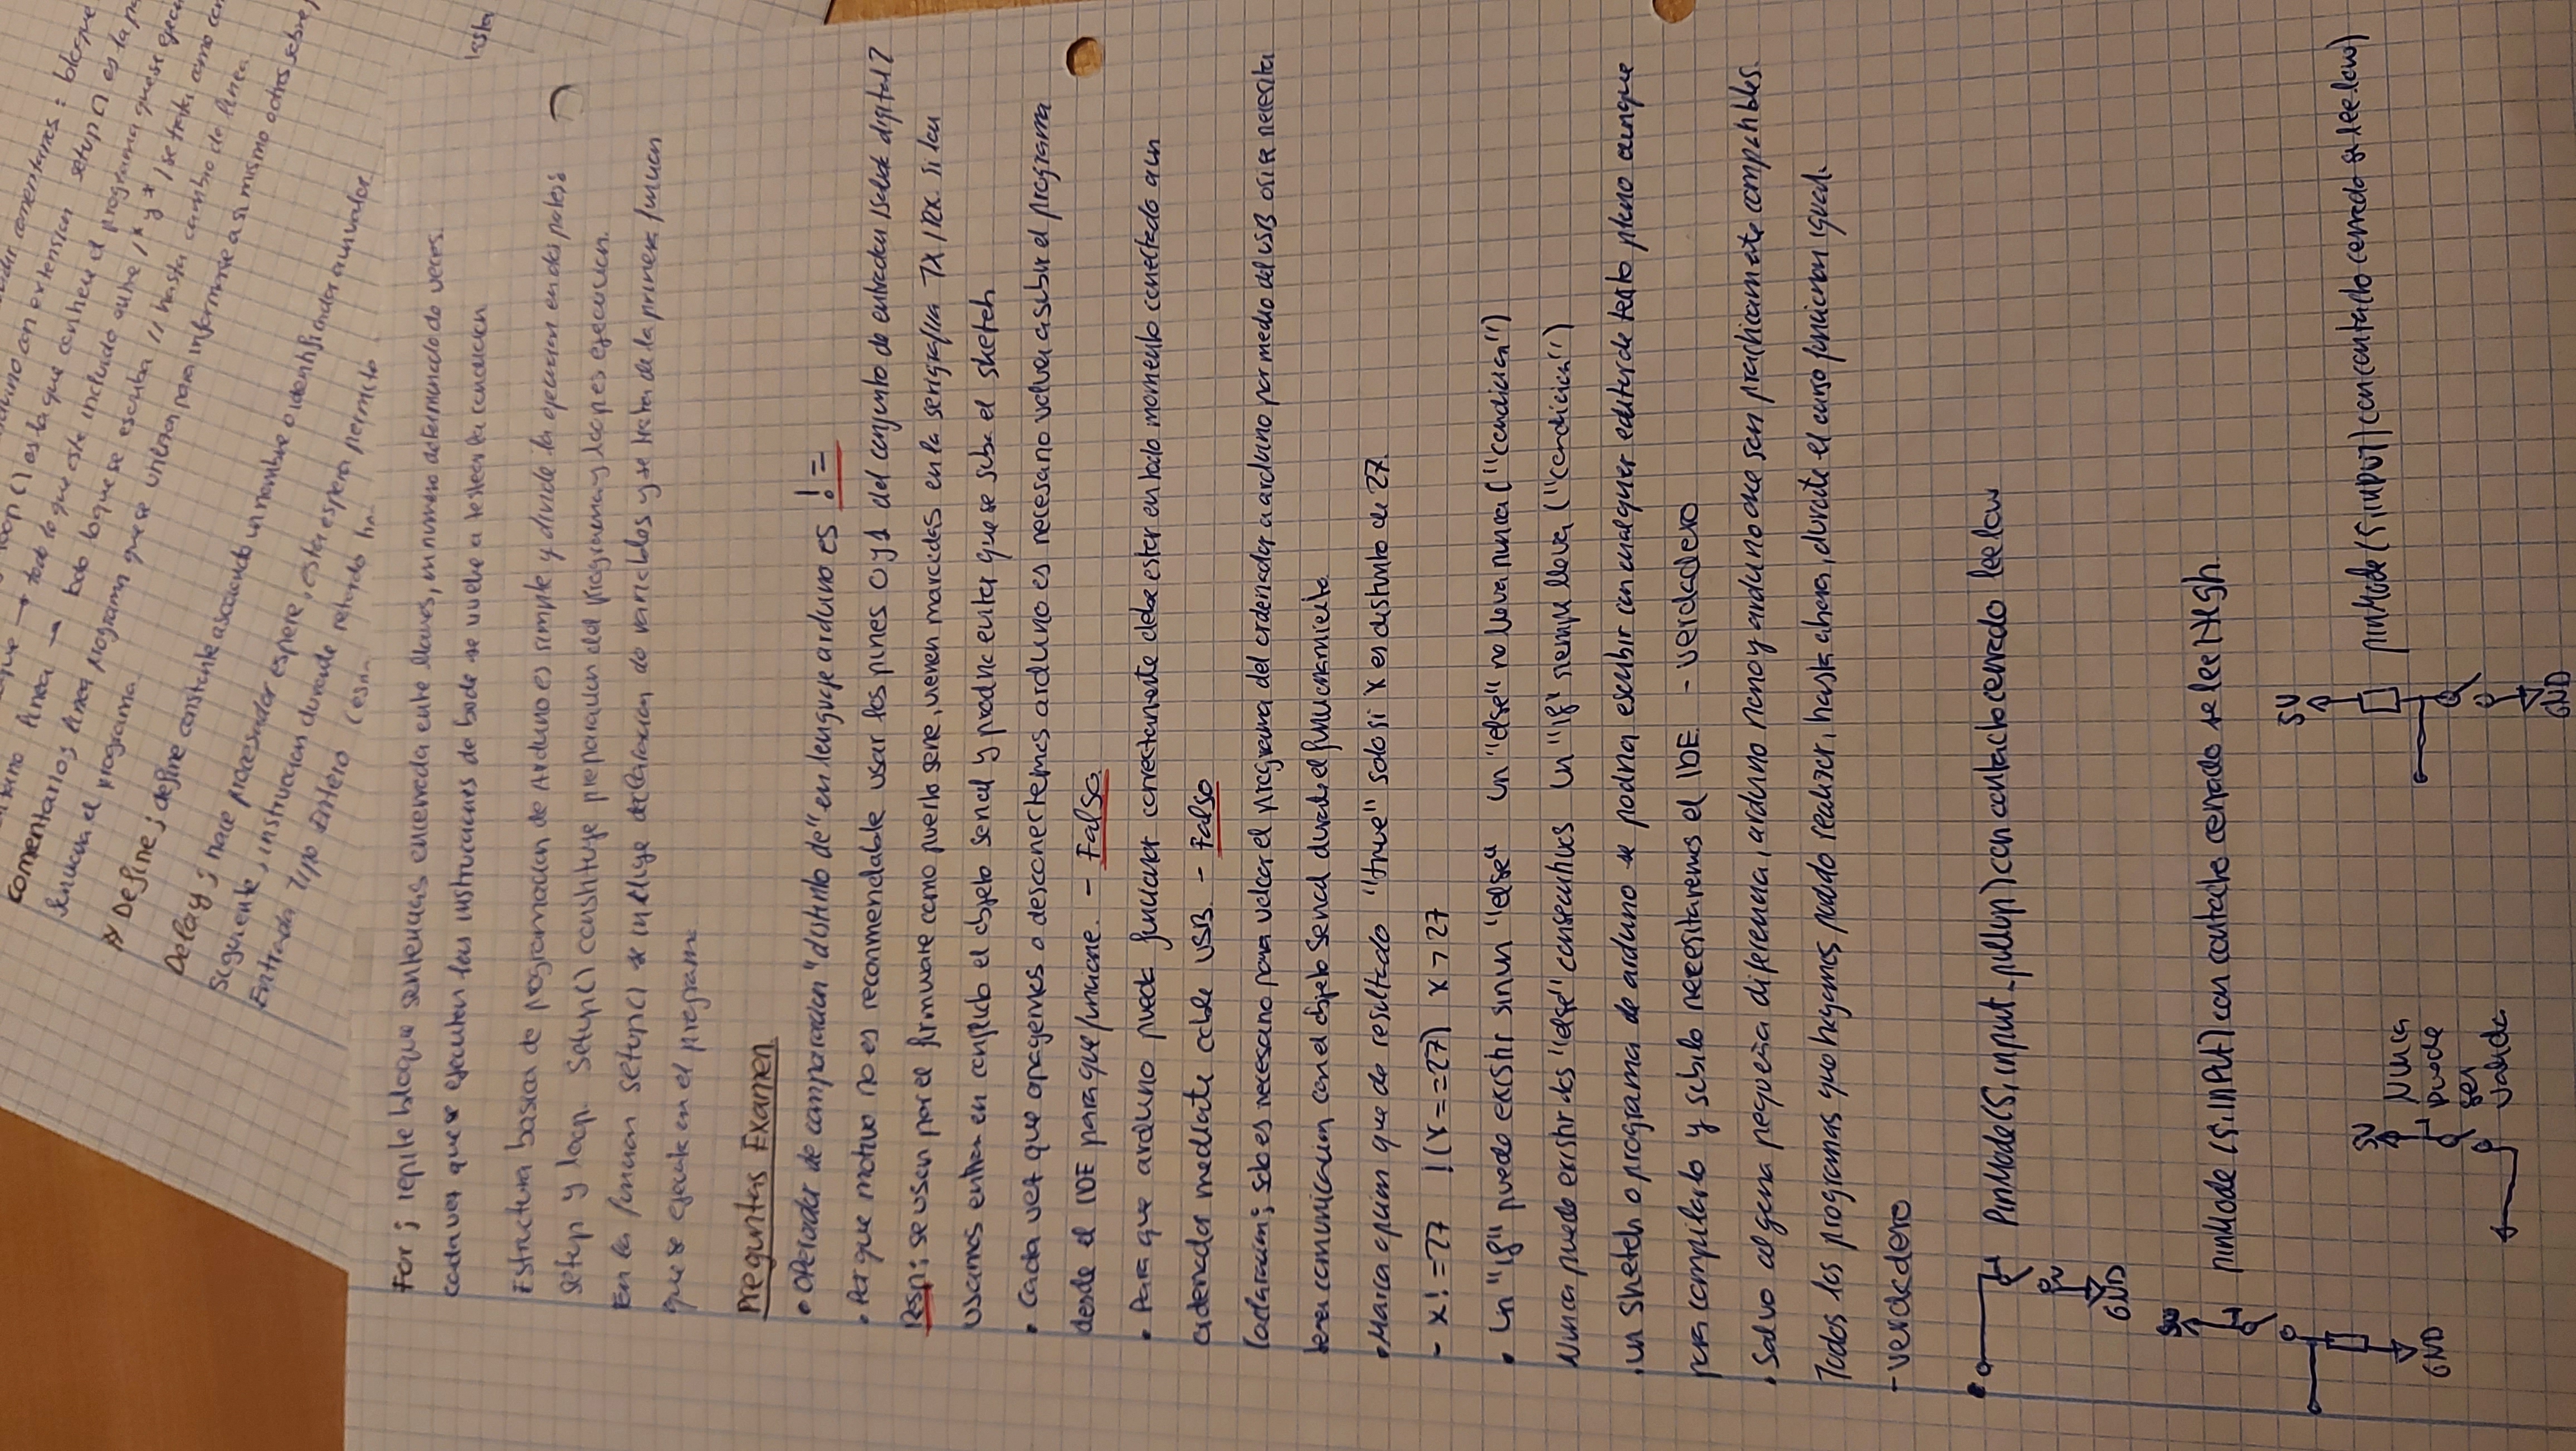 comentarios: bloque
arduino con extension setup() es la p
loop() es la que contiene el programa que se ejecu
bloque → todo lo que este incluido entre /* y */ se trata como com
linea → todo lo que se escriba // hasta cambio de linea.
Comentarios; linea programa que se utiliza para informarse a si mismo o otros sobre
funciona el programa.
Define; define constante asociando un nombre o identificador a un valor
Delay; hace procesador espere, esta espera permite
siguiente, instruccion durante retardo
Entrada tipo Entero
For; repite bloque sentencias encerrada entre llaves, un numero determinado de veces.
cada vez que se ejecuten las instrucciones de bucle se vuelve a testear la condicion
Estructura basica de programacion de Arduino es simple y divide la ejecucion en dos partes
setup y loop. Setup() constituye preparacion del programa y loop es ejecucion.
En la funcion setup() se incluye declaracion de variables y se trata de la primera funcion
que se ejecuta en el programa.
Preguntas Examen
• Operador de comparacion "distinto de" en lenguaje arduino es !=
• Por que motivo no es recomendable usar los pines 0 y 1 del conjunto de entradas/salida digital?
Resp; se usan por el firmware como puerto serie, vienen marcadas en la serigrafia TX/RX. Si los
usamos entran en conflicto el objeto serial y produce evitar que se suba el sketch
• Cada vez que apagemos o desconectemos arduino es necesario volver a subir el programa
desde el IDE para que funcione. - Falso
• Para que arduino pueda funcionar correctamente debe estar en todo momento conectado a un
ordenador mediante cable USB. - Falso
(aclaracion; solo es necesario para volcar el programa del ordenador a arduino por medio del USB o si se necesita
tener comunicacion con el objeto Serial durante el funcionamiento.
• Marca opcion que de resultado "true" solo si x es distinto de 27.
- x != 27 !(x==27) x>27
• Un "if" puede existir sin un "else" Un "else" no lleva nunca ("condicion")
Nunca puede existir dos "else" consecutivos Un "if" siempre lleva ("condicion")
• un Sketch o programa de arduino se podria escribir con cualquier editor de texto plano aunque
para compilarlo y subirlo necesitaremos el IDE. - verdadero
• Salvo alguna pequeña diferencia, arduino nano y arduino one son practicamente compatibles.
Todos los programas que hagamos podido realizar, hasta ahora, durante el curso funcionan igual.
- verdadero
• PinMode(5,input_pullup) con contacto cerrado lee low
GND
5V
pinMode(5,INPUT) con contacto cerrado se lee High.
GND
5V
Nunca
puede
ser
valida
5V
pinMode(5,INPUT) con contacto cerrado se lee low)
GND